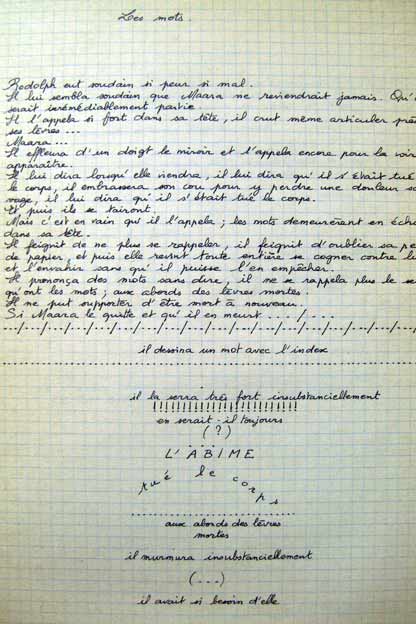 Les mots.
Rodolph eut soudain si peur si mal.
Il lui sembla soudain que Maara ne reviendrait jamais. Qu'
serait irrémédiablement partie.
Il l'appela si fort dans sa tête, il crut même articuler
ses lèvres ...
Maara ...
Il effleura d'un doigt le miroir et l'appela encore pour la voir
apparaître.
Il lui dira lorsqu'elle viendra, il lui dira qu'il s'était tué
le corps, il embrassera son cou pour y perdre une douleur
il lui dira qu'il s'était tué le corps.
Et puis ils se tairont.
Mais c'est en vain qu'il l'appela ; les mots demeurèrent en
dans sa tête.
Il feignit de ne plus se rappeler, il feignit d'oublier sa
de papier, et puis elle revint toute entière se cogner contre
et l'envahir sans qu'il puisse l'en empêcher.
Il prononça des mots sans dire, il ne se rappela plus le
qu'ont les mots ; aux abords des lèvres mortes.
Il ne put supporter d'être mort à nouveau.
Si Maara le quitte et qu'il en meurt ... / ...
il dessina un mot avec l'index
il la serra très fort insubstanciellement
!!!!!!!!!!!!!!!!!!!!!!!!
en serait-il toujours
(?)
L'ABIME
tué le corps
aux abords des lèvres
mortes
il murmura insubstanciellement
(...)
il avait si besoin d'elle